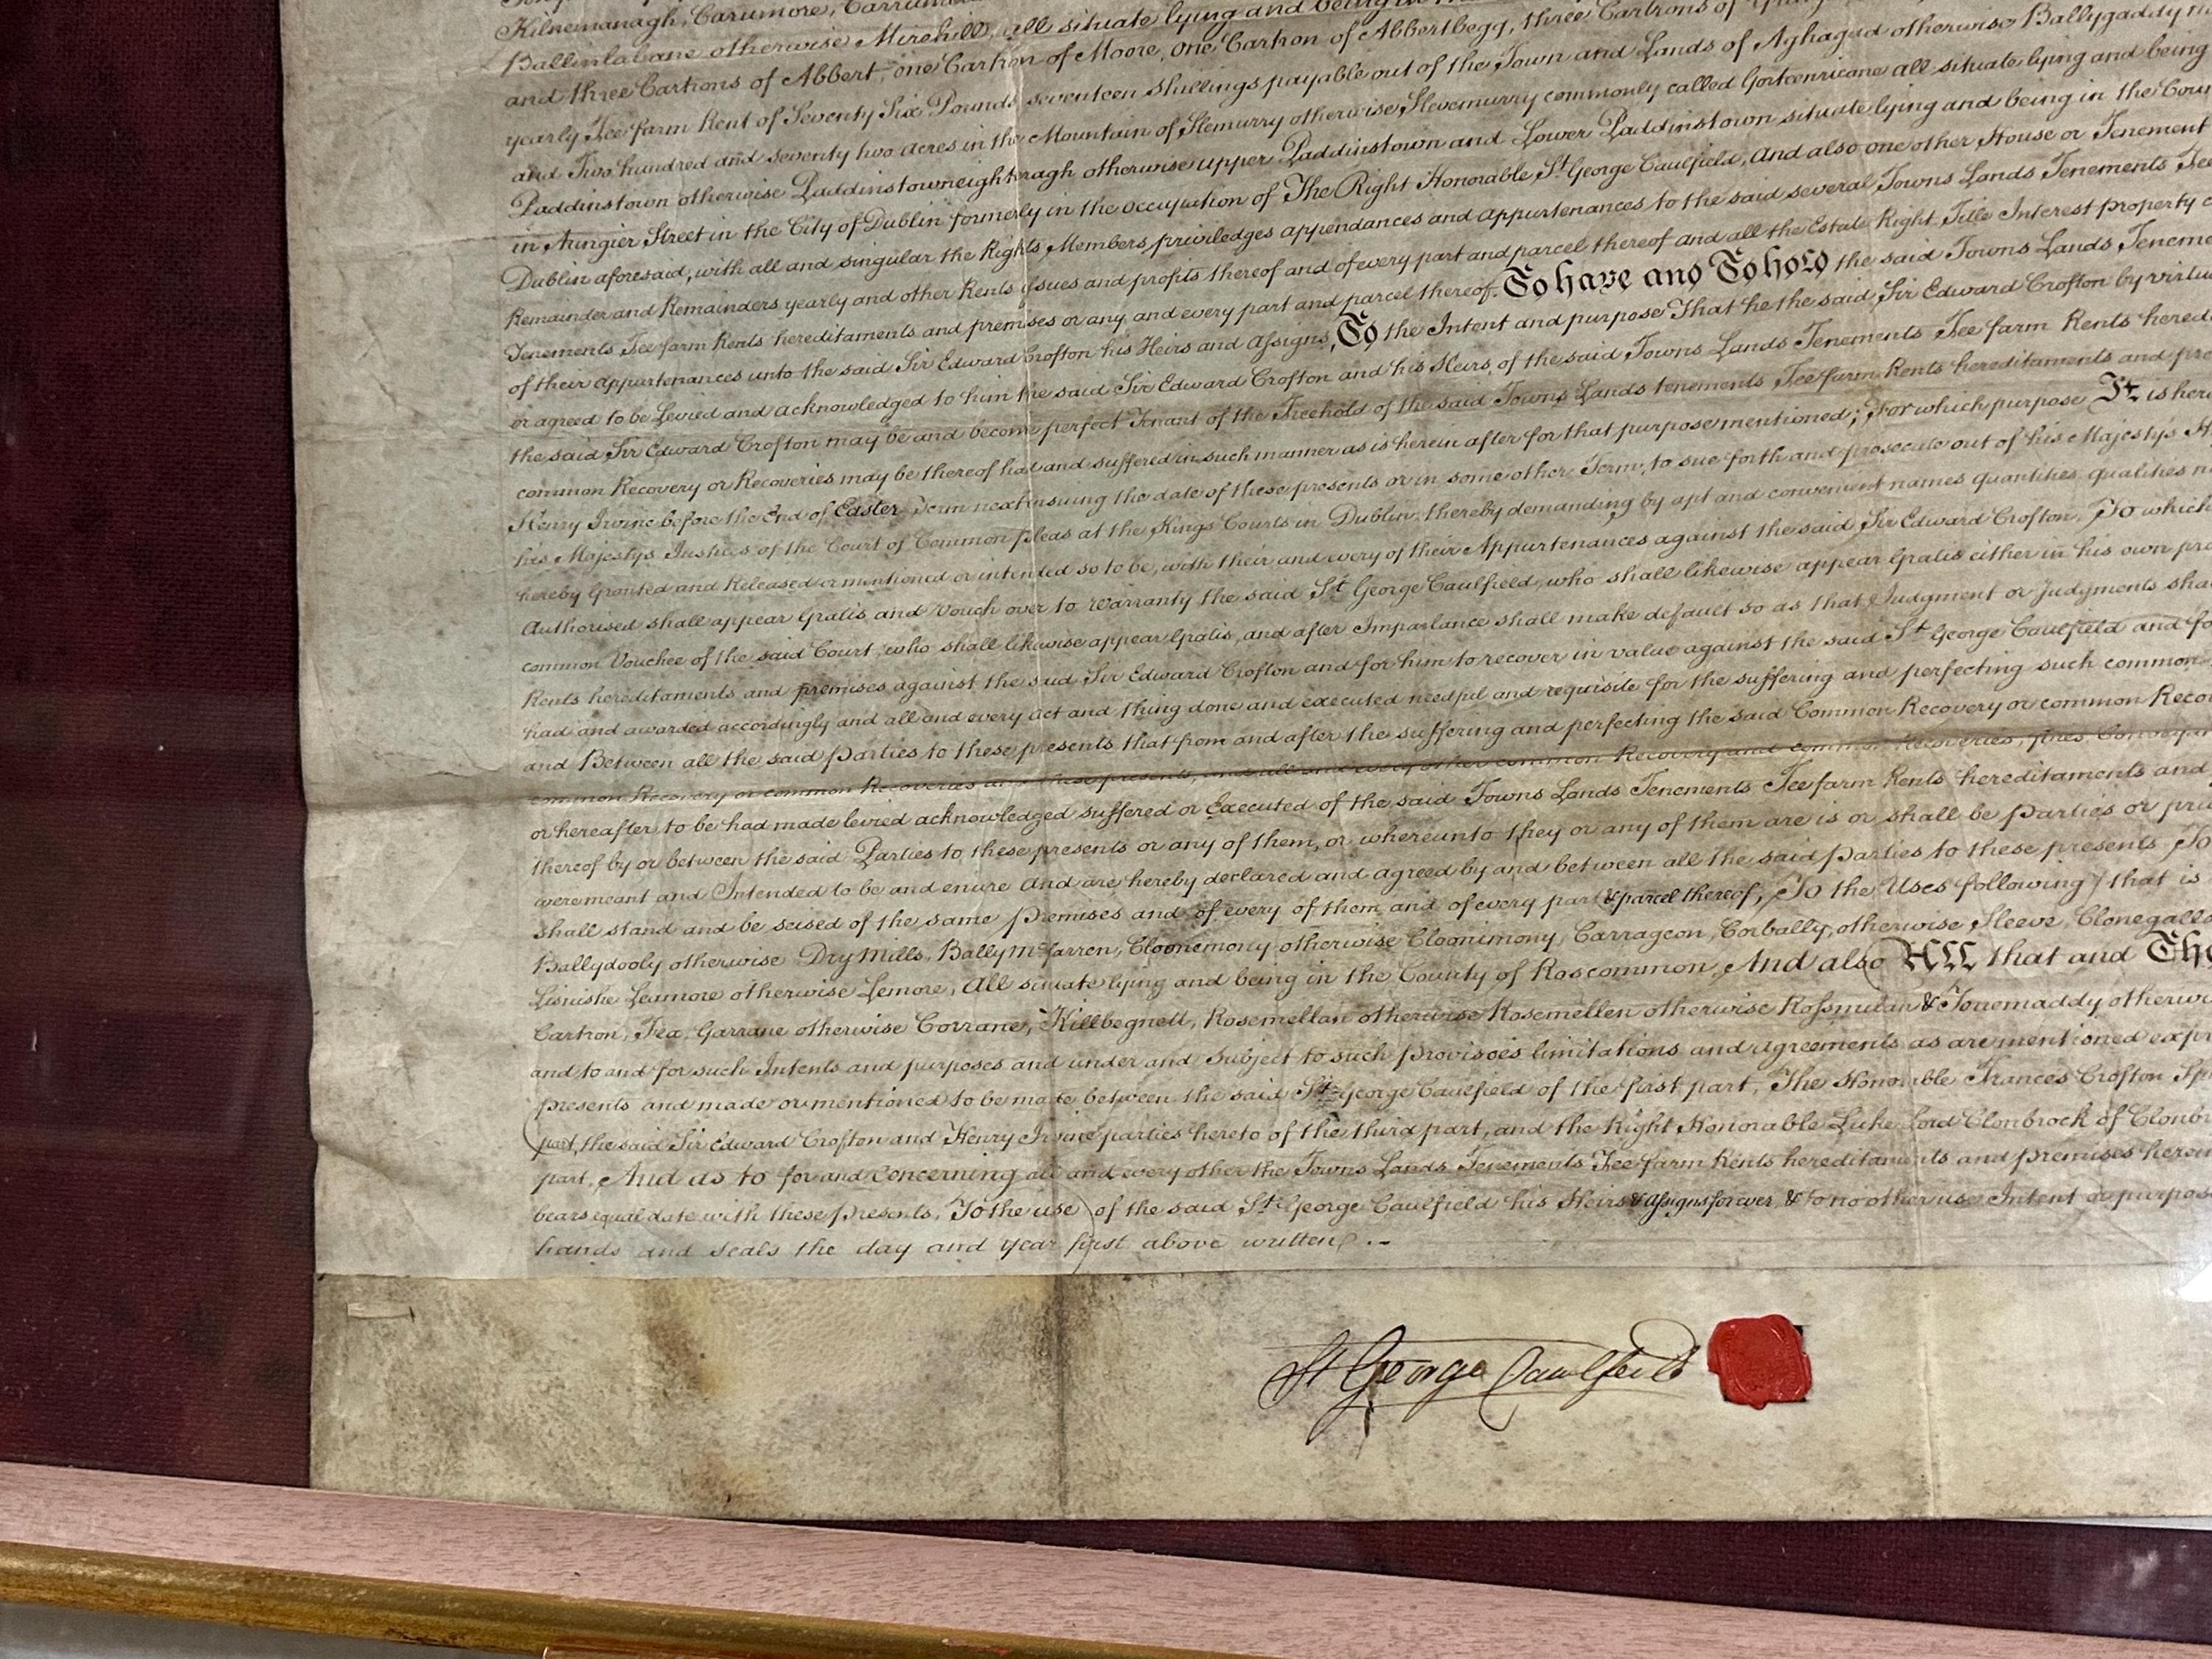 Kilnemanagh, Carumore,
Ballinlabane otherwise Mirehill, all situate lying and being in
and three Cartrons of Abbert, one Cartron of Moore, one Cartron of Abbertbegg, three Cartrons of
yearly Fee farm Rent of Seventy Six Pounds seventeen shillings payable out of the Town and Lands of Aghagad otherwise Ballygaddy
and Two hundred and seventy two acres in the Mountain of Slemurry otherwise Slevemurry commonly called Gorteenricane all situate lying and being
Paddinstown otherwise Paddinstowneighteragh otherwise upper Paddinstown and Lower Paddinstown situate lying and being in the Coun
in Aungier Street in the City of Dublin formerly in the occupation of The Right Honorable St. George Caulfield, And also one other House or Tenement
Dublin aforesaid, with all and singular the Rights, Members, priviledges appendances and appurtenances to the said several Towns Lands Tenements Fee
Remainder and Remainders yearly and other Rents issues and profits thereof and of every part and parcel thereof and all the Estate Right Title Interest property
Tenements Fee farm Rents hereditaments and premises or any and every part and parcel thereof. To have and To hold the said Towns Lands Teneme
of their appurtenances unto the said Sir Edward Crofton his Heirs and Assigns, To the Intent and purpose That he the said Sir Edward Crofton by virtue
or agreed to be Levied and acknowledged to him the said Sir Edward Crofton and his Heirs, of the said Towns Lands Tenements Fee farm Rents hered
the said Sir Edward Crofton may be and become perfect Tenant of the Freehold of the said Towns Lands tenements Fee farm Rents hereditaments and pre
common Recovery or Recoveries may be thereof had and suffered in such manner as is herein after for that purpose mentioned; For which purpose It is here
Henry Irvine before the End of Easter Term next ensuing the date of these presents or in some other Term, to sue forth and prosecute out of his Majestys H
his Majestys Justices of the Court of Common pleas at the Kings Courts in Dublin, thereby demanding by apt and convenient names quantities qualities
hereby Granted and Released or mentioned or intended so to be, with their and every of their Appurtenances against the said Sir Edward Crofton, To which
Authorised shall appear Gratis, and Vouch over to warranty the said St. George Caulfield, who shall likewise appear Gratis either in his own pro
common Vouchee of the said Court, who shall likewise appear Gratis, and after Imparlance shall make default so as that Judgment or Judgments sha
Rents hereditaments and premises against the said Sir Edward Crofton and for him to recover in value against the said St. George Caulfield and fo
had and awarded accordingly and all and every act and thing done and executed needful and requisite for the suffering and perfecting such common
and Between all the said parties to these presents that from and after the suffering and perfecting the said Common Recovery or common Reco
common Recovery or common Recoveries in these presents, and all and every other common Recovery and common Recoveries, fines Conveyan
or hereafter to be had made levied acknowledged suffered or Executed of the said Towns Lands Tenements Fee farm Rents hereditaments and
thereof by or between the said Parties to these presents or any of them, or whereunto they or any of them are is or shall be parties or pri
were meant and Intended to be and enure And are hereby declared and agreed by and between all the said parties to these presents To
shall stand and be seised of the same premises and of every of them and of every part & parcel thereof, To the Uses following / that is
Ballydooly otherwise Dry Mills, Ballymcfarren, Cloonemony otherwise Cloonimony, Carrageon, Corbally, otherwise Sleeve, Clonegall
Lisnishe Leamore otherwise Lemore, All situate lying and being in the County of Roscommon, And also All that and The
Cartron, Fea, Garrane otherwise Corrane, Killbegnett, Rosemellan otherwise Rosemellen otherwise Rossmulan & Tonemaddy otherwi
and to and for such Intents and purposes and under and subject to such provisoes limitations and agreements as are mentioned expr
presents and made or mentioned to be made between the said St. George Caulfield of the first part, The Honorable Frances Crofton Sp
part, the said Sir Edward Crofton and Henry Irvine parties hereto of the third part, and the Right Honorable Luke Lord Clonbrock of Clonb
part, And as to for and concerning all and every other the Towns Lands Tenements Fee farm Rents hereditaments and premises herein
bears equal date with these presents, To the use of the said St. George Caulfield his Heirs & assigns forever, & to no other use Intent or purpose
hands and seals the day and year first above written. -
St George Caulfeild